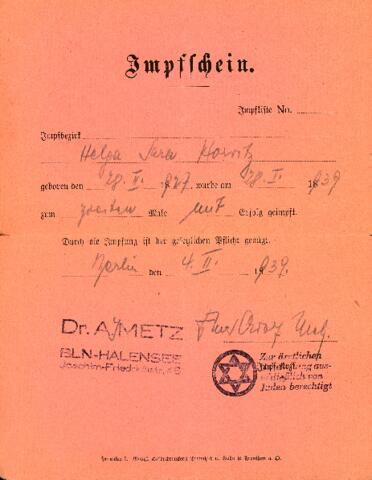 Impfschein.
Impfliste No.
Impfbezirk
Helga Sara Horwitz
geboren den 28. V. 1927. wurde am 28. I. 1939
zum zweiten Male mit Erfolg geimpft.
Durch die Impfung ist der gesetzlichen Pflicht genügt.
Berlin den 4. II. 1939.
Dr. A. METZ
BLN-HALENSEE
Joachim-Friedrichstr. 46
Zur ärztlichen
aus-
schließlich von
Juden berechtigt